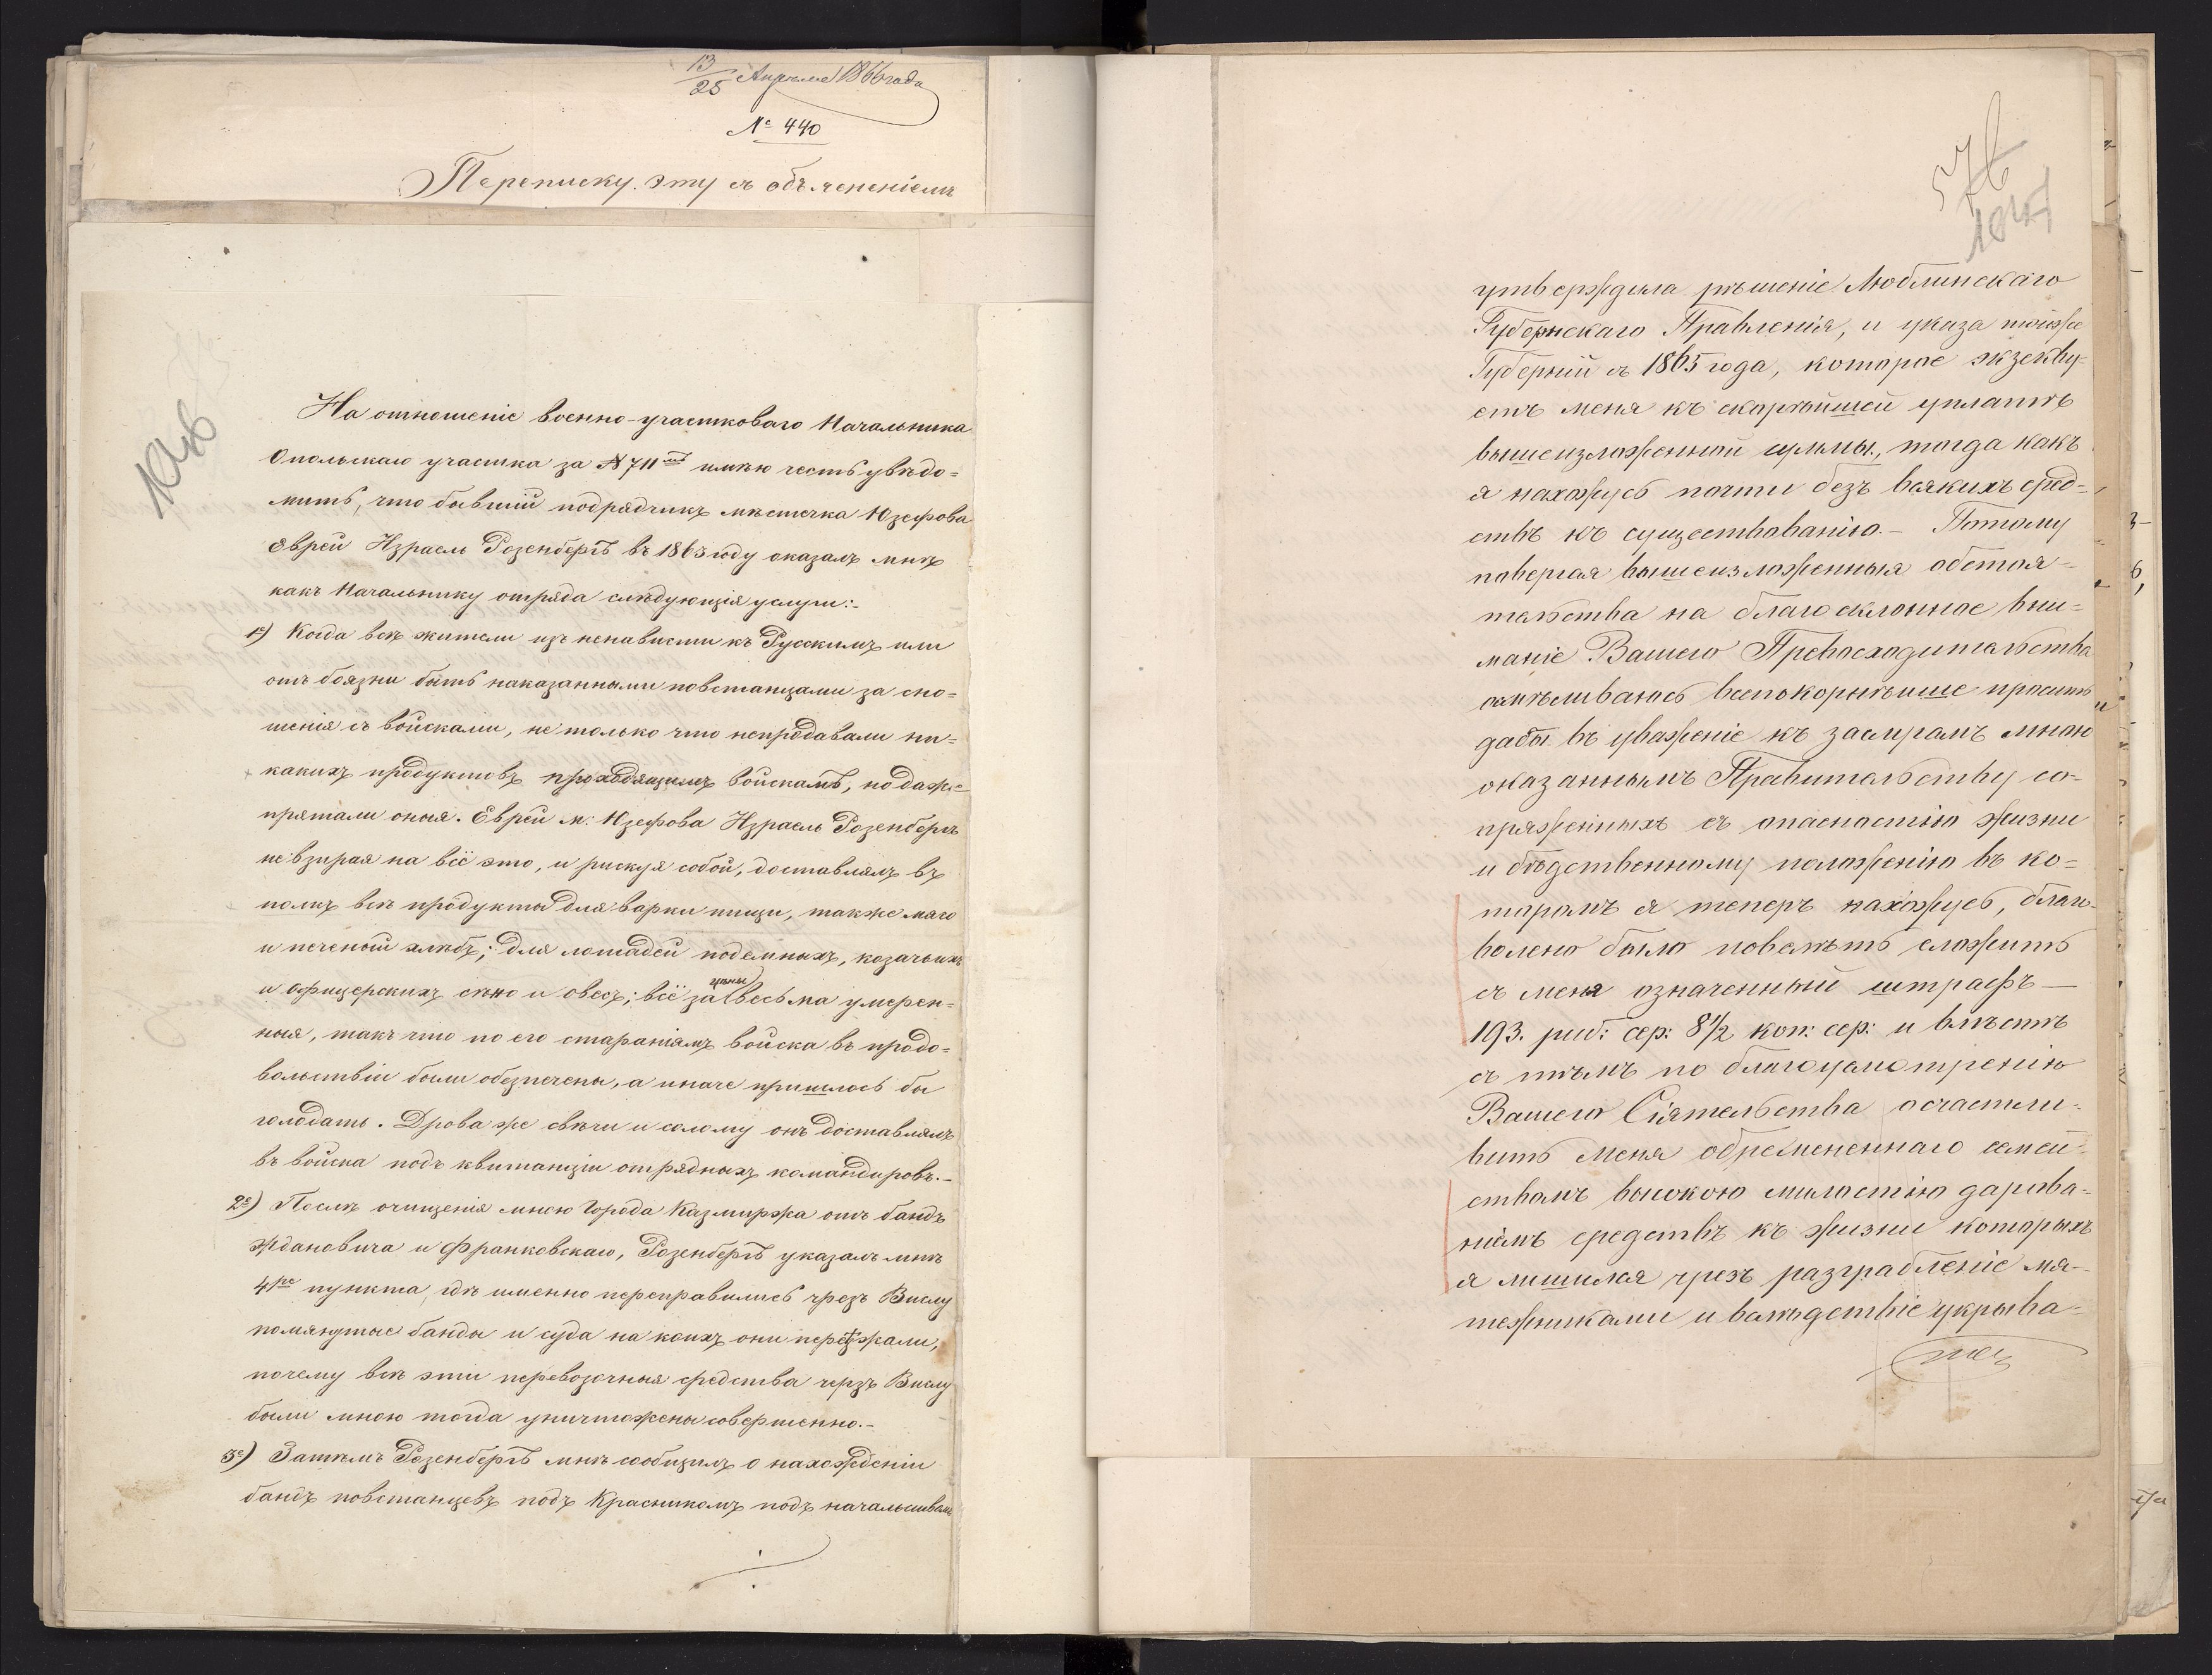 13/25 Апреля 1866 года
№ 440
Переписку эту съ объясненіемъ
На отношеніе военно-участковаго Начальника
Опольскаго участка за № 711мъ имѣю честь увѣдо=
мить, что бывшій подрядчикъ мѣстечка Юзефова
Еврей Израель Розенбергъ въ 1863 году оказалъ мнѣ
какъ Начальнику отряда слѣдующія услуги:-
1е) Когда всѣ жители изъ ненависти къ Русскимъ или
отъ боязни быть наказанными повстанцами за сно=
шенія съ войсками, не только что непродавали ни=
какихъ продуктовъ проходящимъ войскамъ, но даже
прятали оныя. Еврей м: Юзефова Израель Розенбергъ
не взирая на всё это, и рискуя собой, доставлялъ въ
полкъ всѣ продукты для варки пищи, также мясо
и печеный хлѣбъ; для лошадей подемныхъ, козачьихъ
и офицерскихъ сѣно и овесъ; всё за цѣны весьма умерен=
ныя, такъ что по его стараніямъ войска въ продо=
вольствіи были обезпечены, а иначе пришлось бы
голодать. Дрова же свѣчи и солому онъ доставлялъ
въ войска подъ квитанціи отрядныхъ командировъ.-
2е) Послѣ очищенія мною Города Казмиржа отъ бандъ
Ждановича и Франковскаго, Розенбергъ указалъ мнѣ
4ре пункта, гдѣ именно переправились чрезъ Вислу
помянутые банды и суда на коихъ они переѣзжали,
почему всѣ эти перевозочныя средства черзъ Вислу
были мною тогда уничтожены совершенно.-
3е) Затѣмъ Розенбергъ мнѣ сообщилъ о нахожденіи
бандъ повстанцевъ подъ Красникомъ подъ начальствомъ
утвердила рѣшеніе Люблинскаго
Губернскаго Правленія, и указа тойже
Губерніи съ 1865 года, которое экзекву-
етъ меня къ скорѣйшей уплатѣ
вышеизложенной суммы, тогда какъ
я нахожусь почти безъ всякихъ сред=
ствъ къ существованію.- Потому
повергая вышеизложенныя обстоя=
тельства на благосклонное вни=
маніе Вашего Превосходительства
осмѣливаюсь всепокорнѣише просить
дабы въ уваженіе къ заслугамъ мною
оказаннымъ Правительству со-
пряженныхъ съ опасностію жизни
и бѣдственному положенію въ ко=
торомъ я теперъ нахожусь, благо-
волено было повелѣть сложить
съ меня означенный штрафъ —
193. руб: сер: 8 1/2 коп: сер: и вмѣстѣ
съ тѣмъ по благоусмотренію
Вашего Сіятельства осчастли-
вить меня обремененнаго семей-
ствомъ высокою милостію дарова-
ніемъ средствъ къ жизни которыхъ
я лишился чрезъ разграбленіе мя-
тежниками и вслѣдствіе укрыва-